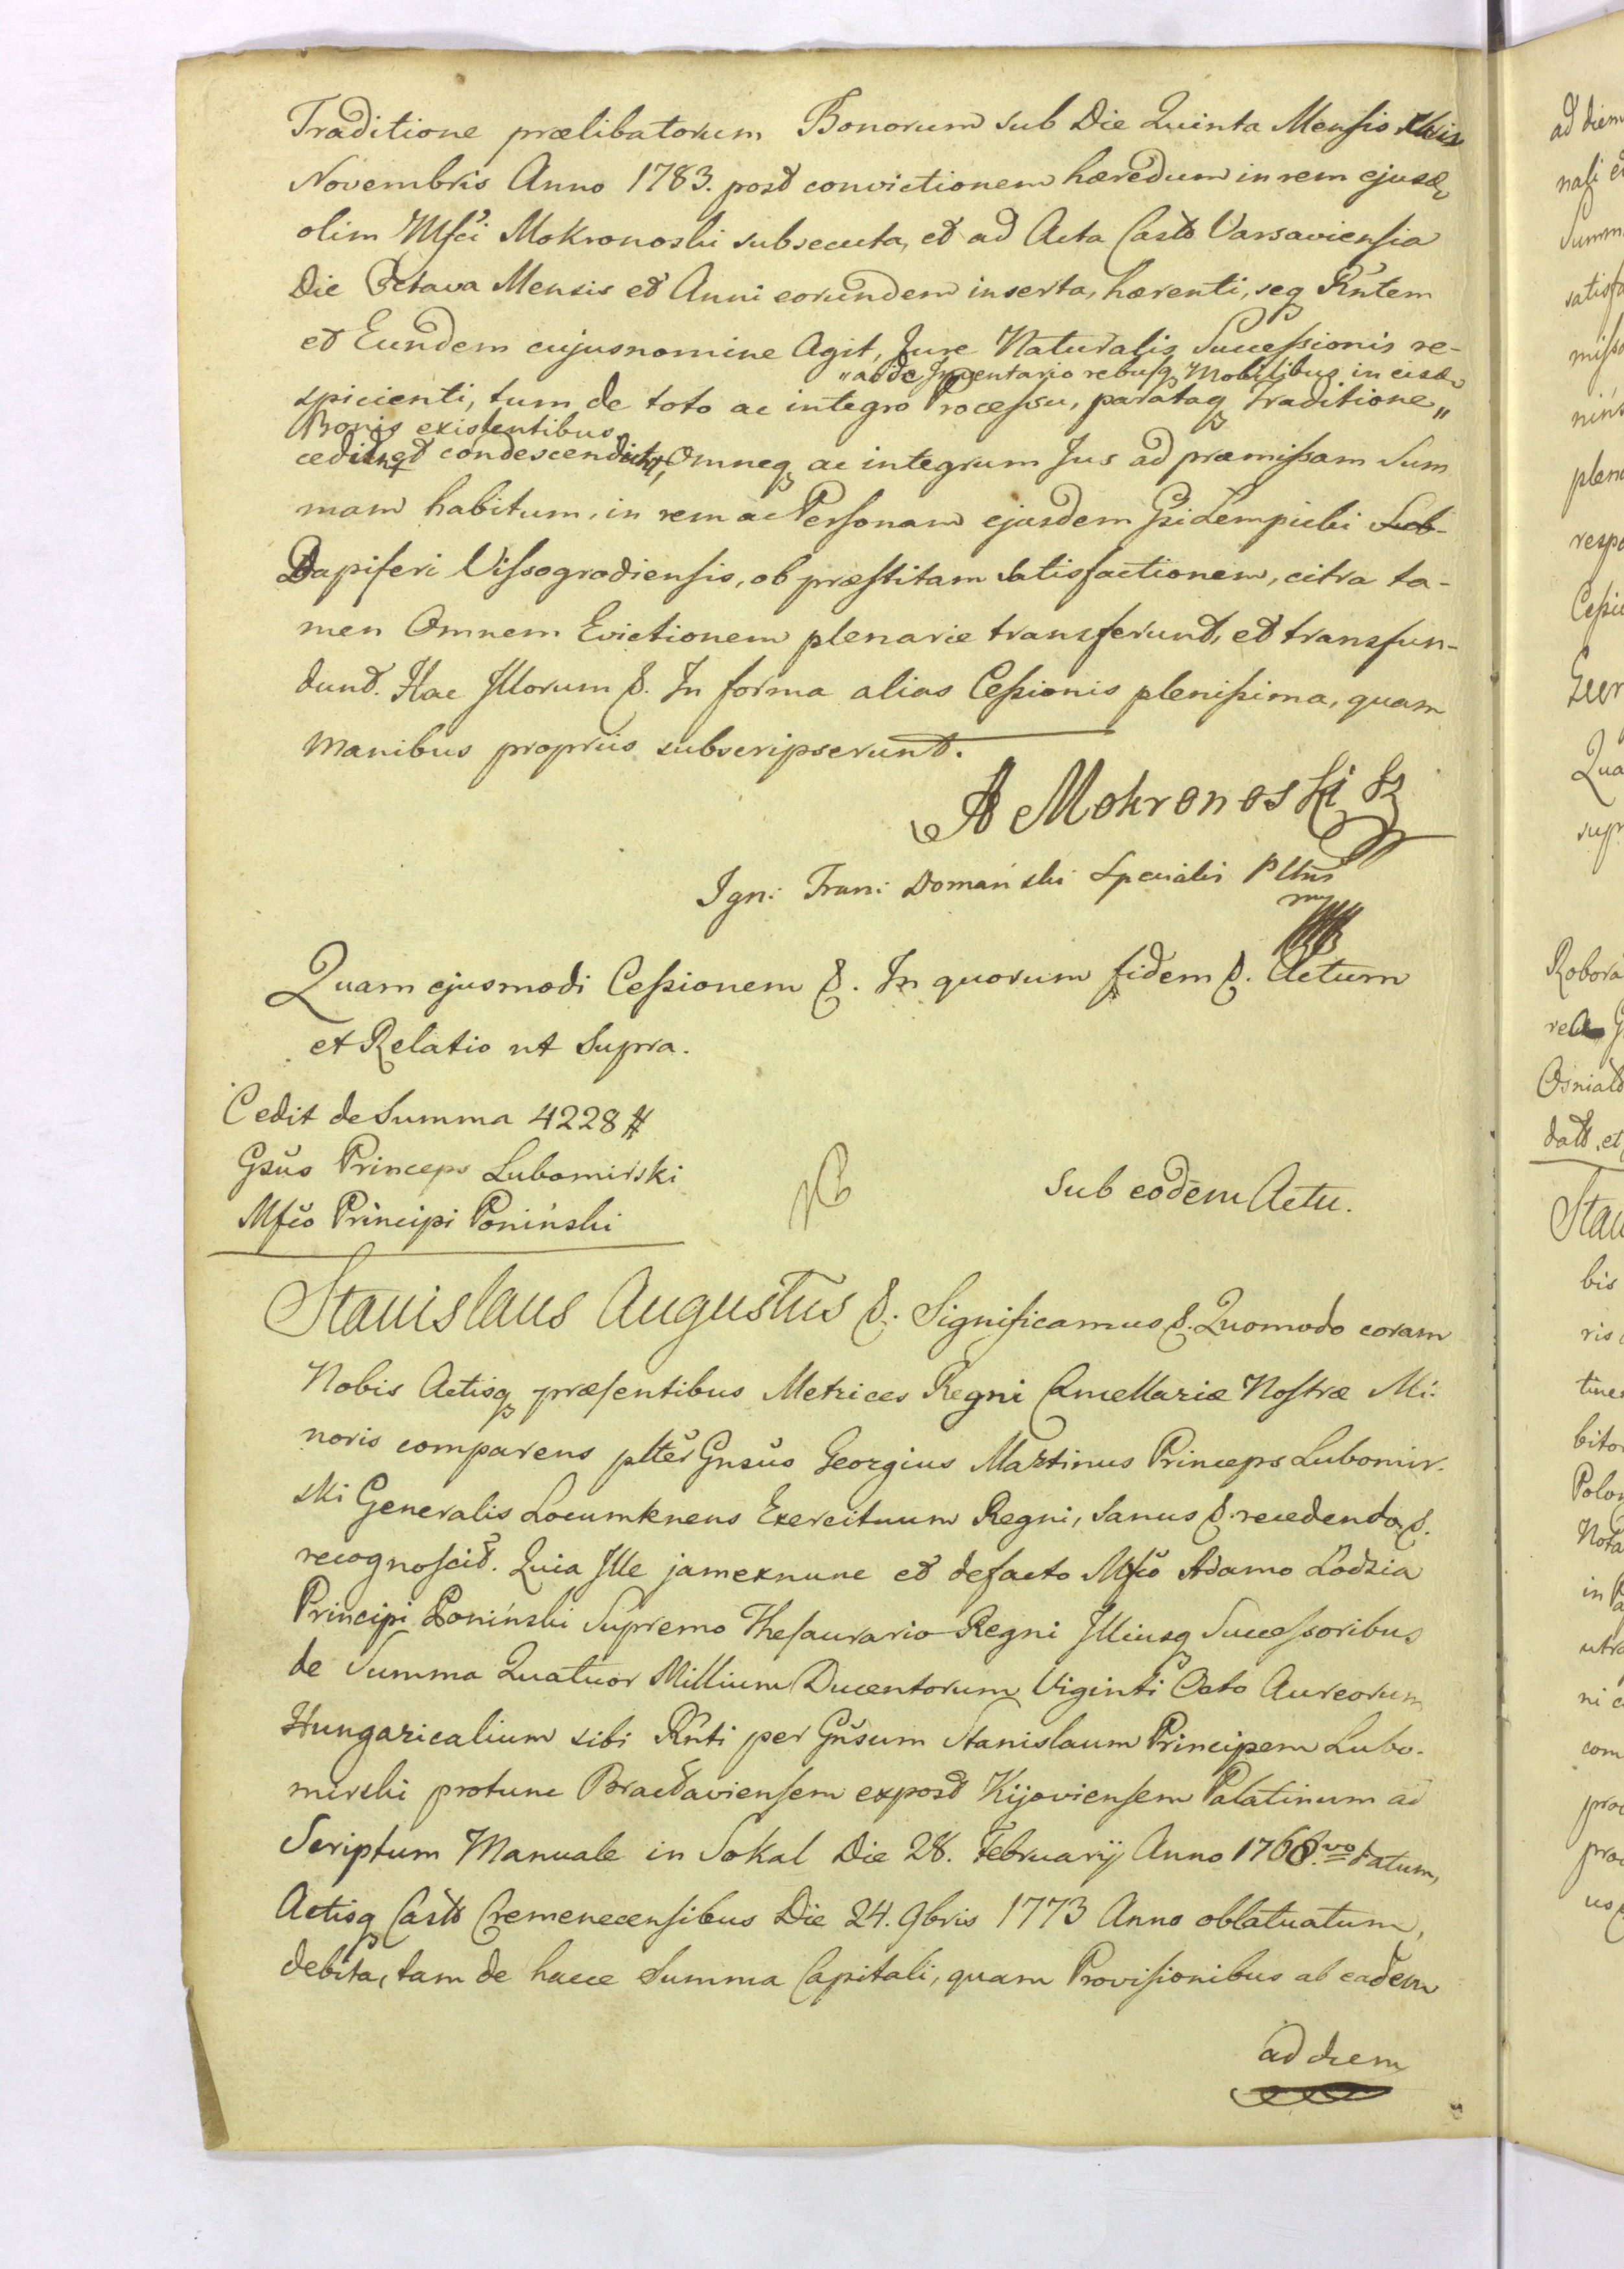 Traditione prælibatorum Bonorum sub Die Quinta Mensis
Novembris Anno 1783. post convictionem hæredum in rem ejusd
olim Mfci Mokronoski subsecuta, et ad Acta Castr Varsaviensia
Die Octava Mensis et Anni eorundem inserta, hærenti, seq Rntem
et Eundem cujusnomine Agit, Jure Naturalis Successionis re-
"ac de Inventario rebusq Mobilibus in eisd
spicienti, tum de toto ac integro Processu, parataq Traditione "
Bonis existentibus
cedunt et condescendunt, Omneq ac integrum Jus ad præmissam Sum
mam habitum, in rem ac Personam ejusdem Gsi Lempicki Sub-
Dapiferi Vissogrodiensis, ob præstitam satisfactionem, citra ta-
men Omnem Evictionem plenarie transferunt, et transfun-
dunt. Hac Illorum &. In forma alias Cessionis plenissima, quam
Manibus propriis subscripserunt.
A Mokronoski
Ign: Fran: Domański Specialis Plnś
mp
Quam ejusmodi Cessionem &. In quorum fidem &. Actum
et Relatio ut Supra.
Cedit de Summa 4228 #
Gsus Princeps Lubomirski
Mfco Principi Poniński
Sub eodem Actu.
Stanislaus Augustus &. Significamus &. Quomodo coram
Nobis Actisq præsentibus Metrices Regni Cancellariæ Nostræ Mi:
noris comparens plter Gnsus Georgius Martinus Princeps Lubomir.
ski Generalis Locumtenens Exercituum Regni, Sanus &. recedendo &.
recognoscit. Quia Ille jamexnunc et defacto Mfco Adamo Lodzia
Principi Poniński Supremo Thesaurario Regni Illiusq Successoribus
de Summa Quatuor Millium Ducentorum Viginti Octo Aureorum
Hungaricalium sibi Rnti per Gnsum Stanislaum Principem Lubo-
mirski protunc Bracłaviensem expost Kijoviensem Palatinum ad
Scriptum Manuale in Sokal Die 28. Februarij Anno 1768.vo datum,
Actisq Castr Cremenecensibus Die 24. 9bris 1773 Anno oblatuatum,
debita, tam de hacce Summa Capitali, quam Provisionibus ab eadem
ad diem